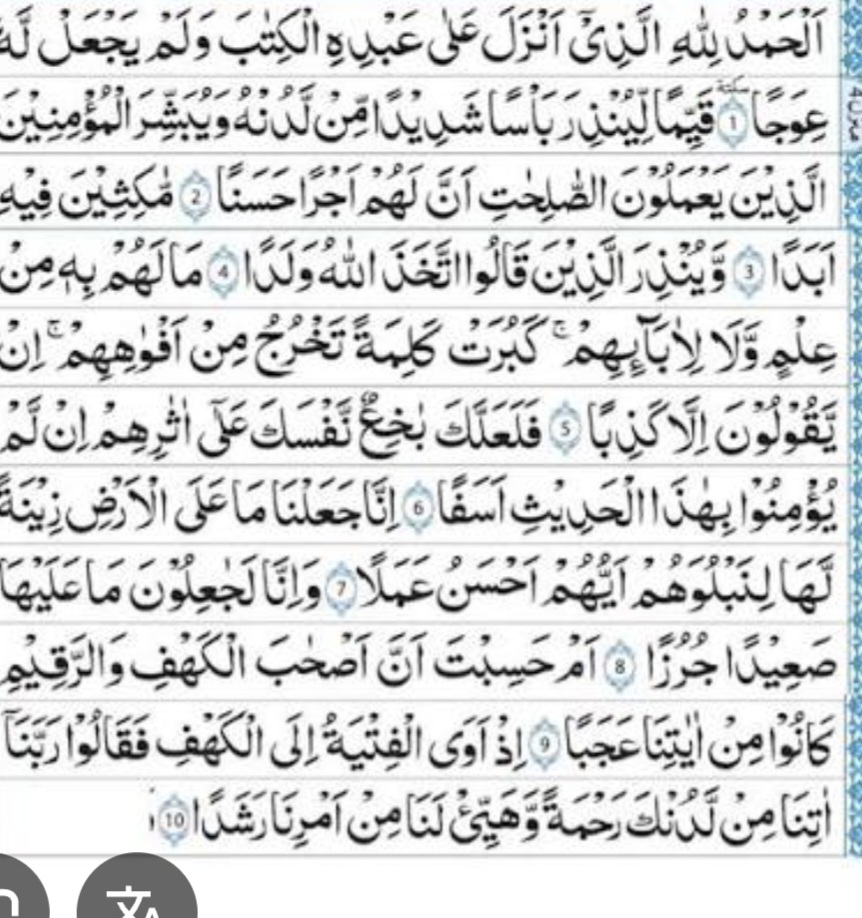 اَلْحَمْدُ لِلّٰهِ الَّذِیْۤ اَنْزَلَ عَلٰی عَبْدِهِ الْكِتٰبَ وَ لَمْ یَجْعَلْ لَّهٗ
عِوَجًا ؕٚ سكتة ۝1 قَیِّمًا لِّیُنْذِرَ بَاْسًا شَدِیْدًا مِّنْ لَّدُنْهُ وَ یُبَشِّرَ الْمُؤْمِنِیْنَ
الَّذِیْنَ یَعْمَلُوْنَ الصّٰلِحٰتِ اَنَّ لَهُمْ اَجْرًا حَسَنًا ۝2 مّٰكِثِیْنَ فِیْهِ
اَبَدًا ۝3 وَّ یُنْذِرَ الَّذِیْنَ قَالُوا اتَّخَذَ اللّٰهُ وَلَدًا ۝4 مَا لَهُمْ بِهٖ مِنْ
عِلْمٍ وَّ لَا لِاٰبَآىِٕهِمْ ۚ كَبُرَتْ كَلِمَةً تَخْرُجُ مِنْ اَفْوٰهِهِمْ ۚ اِنْ
یَّقُوْلُوْنَ اِلَّا كَذِبًا ۝5 فَلَعَلَّكَ بٰخِعٌ نَّفْسَكَ عَلٰۤی اٰثٰرِهِمْ اِنْ لَّمْ
یُؤْمِنُوْا بِهٰذَا الْحَدِیْثِ اَسَفًا ۝6 اِنَّا جَعَلْنَا مَا عَلَی الْاَرْضِ زِیْنَةً
لَّهَا لِنَبْلُوَهُمْ اَیُّهُمْ اَحْسَنُ عَمَلًا ۝7 وَ اِنَّا لَجٰعِلُوْنَ مَا عَلَیْهَا
صَعِیْدًا جُرُزًا ۝8 اَمْ حَسِبْتَ اَنَّ اَصْحٰبَ الْكَهْفِ وَ الرَّقِیْمِ
كَانُوْا مِنْ اٰیٰتِنَا عَجَبًا ۝9 اِذْ اَوَی الْفِتْیَةُ اِلَی الْكَهْفِ فَقَالُوْا رَبَّنَاۤ
اٰتِنَا مِنْ لَّدُنْكَ رَحْمَةً وَّ هَیِّئْ لَنَا مِنْ اَمْرِنَا رَشَدًا ۝10